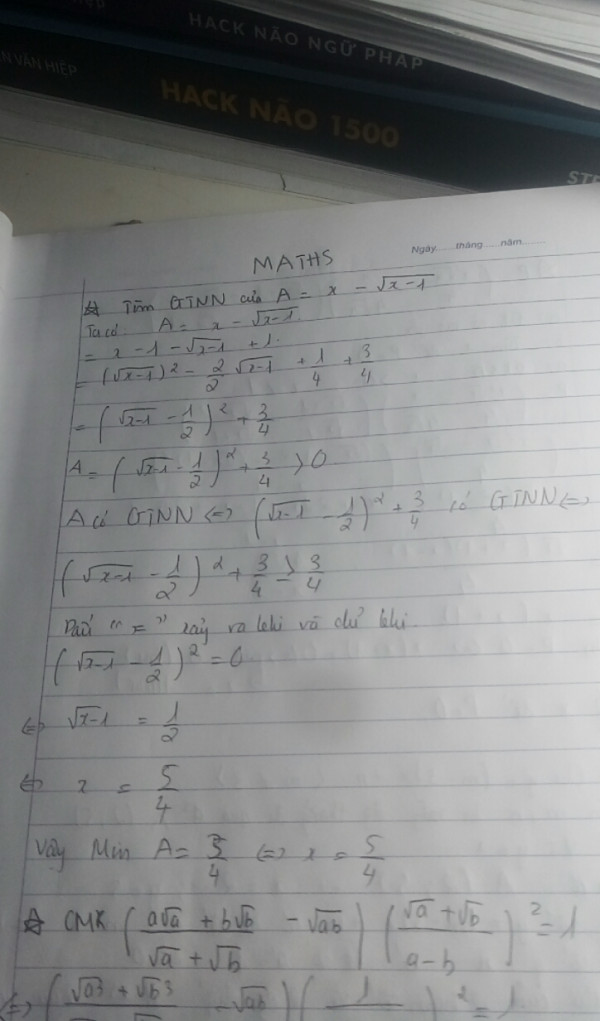 HACK NÃO NGỮ PHÁP
N VĂN HIỆP
HACK NÃO 1500
STE
Ngày......tháng......năm.........
MATHS
☆ Tìm GTNN của A = x - √(x-1)
Ta có: A = x - √(x-1)
= x - 1 - √(x-1) + 1
= (√(x-1))² - 2/2 √(x-1) + 1/4 + 3/4
= (√(x-1) - 1/2)² + 3/4
A = (√(x-1) - 1/2)² + 3/4 > 0
A có GTNN <=> (√(x-1) - 1/2)² + 3/4 có GTNN <=>
(√(x-1) - 1/2)² + 3/4 ≥ 3/4
Dấu " = " xảy ra khi và chỉ khi
(√(x-1) - 1/2)² = 0
<=> √(x-1) = 1/2
<=> x = 5/4
Vậy Min A = 3/4 <=> x = 5/4
☆ CMR ((a√a + b√b)/(√a + √b) - √ab) ((√a + √b)/(a - b))² = 1
<=> ((√a3 + √b3) - √ab) (1)² = 1